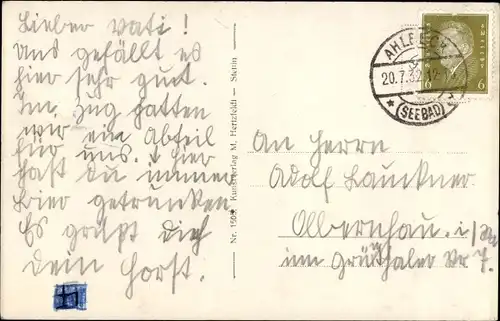 Lieber Vati!
Uns gefällt es
hier sehr gut.
Im Zug hatten
wir ein Abteil
für uns. hier
hast du immer
Bier getrunken
Es grüßt dich
dein Horst.
Nr. Kunstverlag M. Hertzfeldt - Stettin
AHLBECK
20.7.32.12-1
* (SEEBAD)
6 6
An Herrn
Adolf Lauckner
Olbernhau. i/
Grünthaler Str 7.